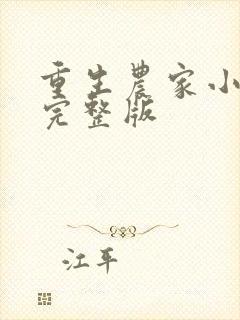 重生農家小
完整版
江平